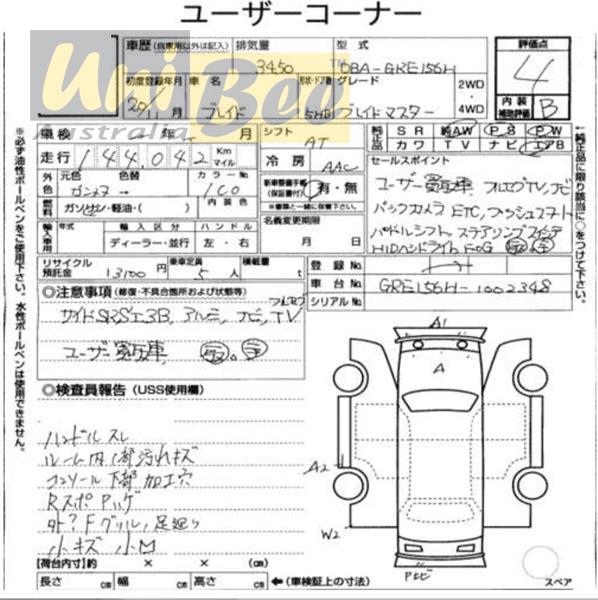 ユーザーコーナー
UniBee
Australia
車歴 (自家用以外は記入) 排気量 型式 評価点
3450 DBA-GRE156H 4
初度登録年月 車名 形状・ドア数 グレード 2WD
20/11月 ブレイド 5HB ブレイドマスター ・4WD
内装補助評価 B
車検 年 月 シフト AT 純正品 SR 純AW PS PW
カワ TV ナビ エアB
走行 144,042 Km マイル 冷房 AAC セールスポイント
外色 元色 色替 カラーNo. 新車整備手帳(保証書付) 有・無
ガンメタ → 1C0 ※書類と一緒に保管下さい。
燃料 ガソリン・軽油・( ) 内装色 名義変更期限
月 日
輸入車用 年式 輸入区分 ハンドル
ディーラー・並行 左・右
ユーザー買取車 フルセグTV,ナビ
バックカメラ ETC,プッシュスタート
パドルシフト ステアリングスイッチ
HIDヘッドライト FOG
リサイクル預託金 13100円 乗車定員 5人 積載量 t
登録No.
車台No. GRE156H-1002348
シリアルNo.
◎注意事項 (修復・不具合箇所および状態等) フルセグ
サイドSRSエアB,アルミ,ナビ,TV
ユーザー買取車
◎検査員報告 (USS使用欄)
ハンドルスレ
ルーム内1部汚れキズ
コンソール下部加工穴
RスポPハゲ
Fグリル,足廻り
小キズ 小凹
A1
A
A2
W2
Pヒビ
スペア
【荷台内寸】約 × × (㎝)
長さ ㎝ 幅 ㎝ 高さ ㎝ ←(車検証上の寸法)
※必ず油性ボールペンをご使用下さい。水性ボールペンは使用できません。
←純正品に限り該当に○をつけて下さい。